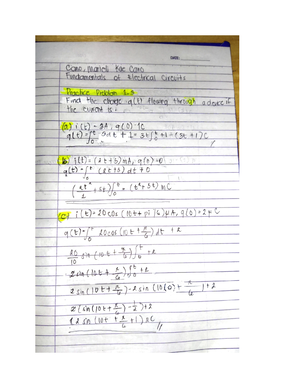 DATE:
Cano, Marieli Mae Cano
Fundamentals of Electrical Circuits
Practice Problem 1.3
Find the charge q(t) flowing through a device if
the current is:
(a) i(t) = 3A, q(0) 1C
(b) i(t) = (2t+5) mA, q(0)=0
q(t)=∫₀ᵗ (2t+5) dt + 0
(t²+5t) mC
(c) i(t) = 20 cos (10t + π/6) μA, q(0) = 2 μC
q(t)=∫₀ᵗ 20 cos (10t + π/6) dt + 2
20/10 sin (10t + π/6) |₀ᵗ + 2
2 sin (10t + π/6) |₀ᵗ + 2
2 sin (10t + π/6) - 2 sin (10(0) + π/6) + 2
2 (sin (10t + π/6) - 1/2) + 2